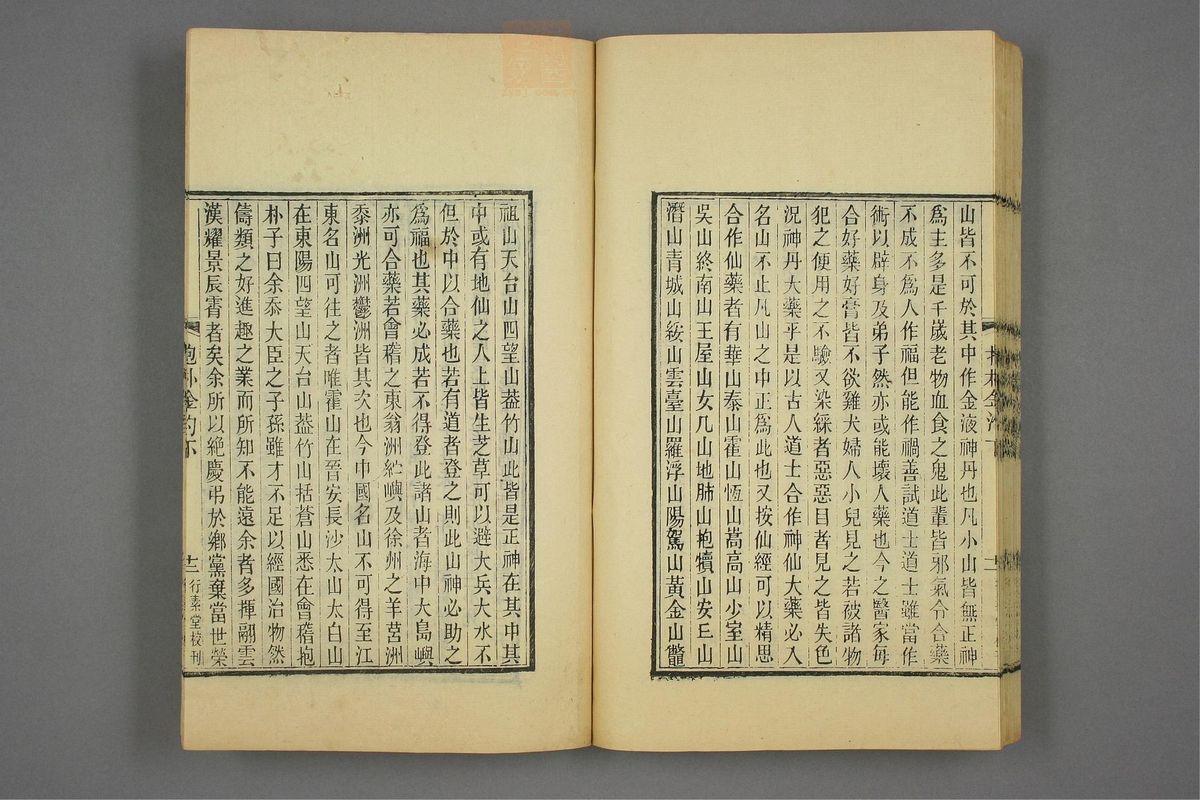 山皆不可於其中作金液神丹也凡小山皆無正神
爲主多是千歲老物血食之鬼此輩皆邪氣令合藥
不成不爲人作福但能作禍善試道士道士雖當作
術以辟身及弟子然亦或能壞人藥也今之醫家每
合好藥好膏皆不欲雞犬婦人小兒見之若被諸物
犯之便用之不驗又染綵者惡惡目者見之皆失色
況神丹大藥乎是以古人道士合作神仙大藥必入
名山不止凡山之中正爲此也又按仙經可以精思
合作仙藥者有華山泰山霍山恆山嵩高山少室山
吳山終南山王屋山女几山地肺山抱犢山安丘山
潛山青城山綏山雲臺山羅浮山陽駕山黃金山鼈
祖山天台山四望山葢竹山此皆是正神在其中其
中或有地仙之人上皆生芝草可以避大兵大水不
但於中以合藥也若有道者登之則此山神必助之
爲福也其藥必成若不得登此諸山者海中大島嶼
亦可合藥若會稽之東翁洲紵嶼及徐州之羊莒洲
黍洲光洲鬱洲皆其次也今中國名山不可得至江
東名山可往之者唯霍山在晉安長沙太山太白山
在東陽四望山天台山葢竹山括蒼山悉在會稽抱
朴子曰余忝大臣之子孫雖才不足以經國治物然
儔類之好進趣之業而所知不能遠余者多揮翮雲
漢耀景辰霄者矣余所以絶慶弔於鄉黨棄當世榮
十二
行素堂校刊